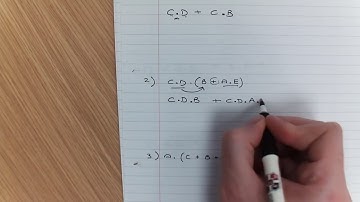 C.D + C.B
2) C.D.(B+A.E)
C.D.B + C.D.A.
3) A.(C+B+